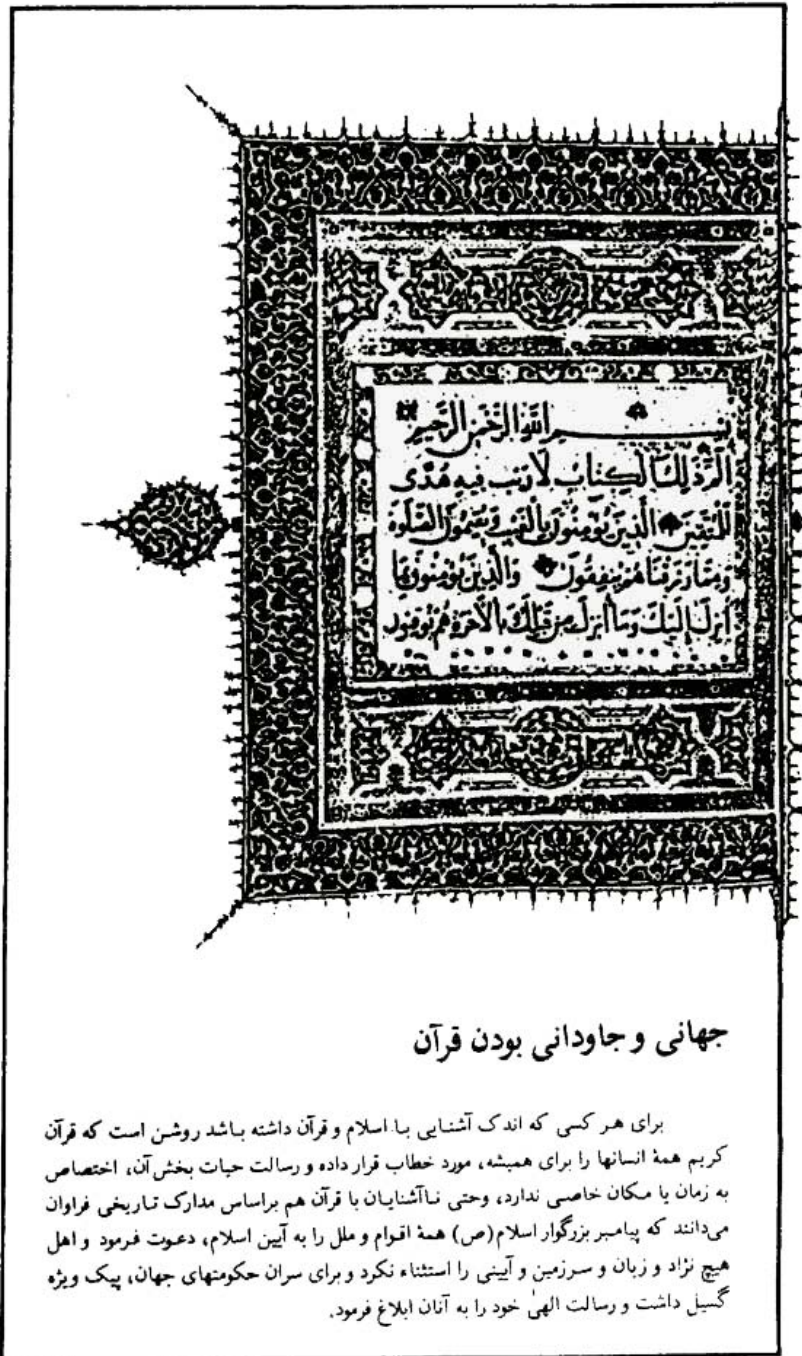 بسم الله الرحمن الرحيم
الم ذلك الكتاب لا ريب فيه هدى
للمتقين الذين يؤمنون بالغيب ويقيمون الصلوة
ومما رزقناهم ينفقون والذين يؤمنون بما
انزل إليك وما أنزل من قبلك بالآخرة هم يوقنون
جهانی و جاودانی بودن قرآن
برای هر کسی که اندک آشنایی با اسلام و قرآن داشته باشد روشن است که قرآن
کریم همهٔ انسانها را برای همیشه، مورد خطاب قرار داده و رسالت حیات بخش آن، اختصاص
به زمان یا مکان خاصی ندارد، وحتی ناآشنایان با قرآن هم براساس مدارک تاریخی فراوان
می‌دانند که پیامبر بزرگوار اسلام(ص) همهٔ اقوام و ملل را به آیین اسلام، دعوت فرمود و اهل
هیچ نژاد و زبان و سرزمین و آیینی را استثناء نکرد و برای سران حکومتهای جهان، پیک ویژه
گسیل داشت و رسالت الهیٰ خود را به آنان ابلاغ فرمود.